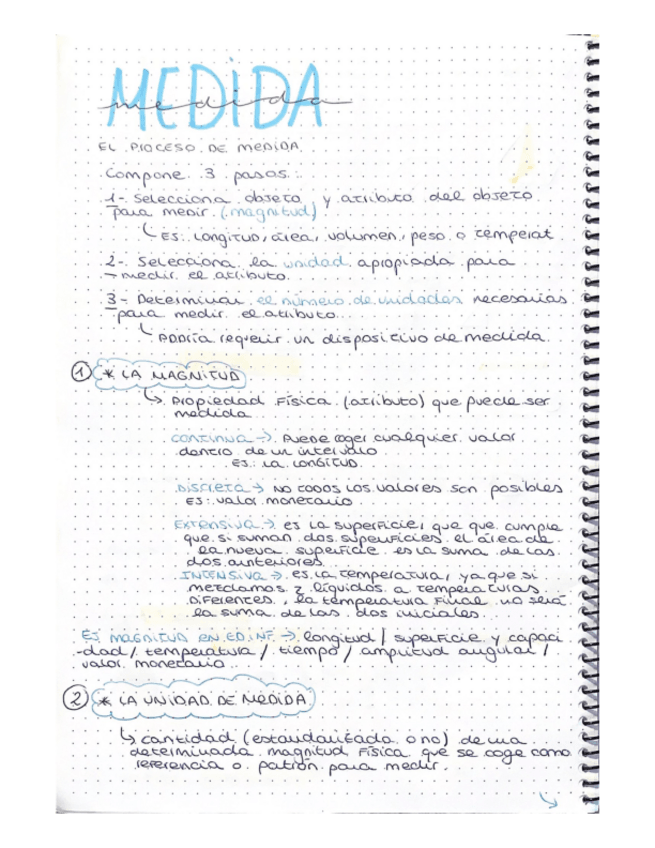 MEDIDA
medida
EL PROCESO DE MEDIDA
Compone 3 pasos:
1- Selecciona objeto y atributo del objeto
para medir (magnitud)
ES: Longitud, área, volumen, peso o temperat
2- Selecciona la unidad apropiada para
medir el atributo
3- Determinar el número de unidades necesarias
para medir el atributo
Podría requerir un dispositivo de medida
1 * LA MAGNITUD
Propiedad física (atributo) que puede ser
medida
CONTINUA → Puede coger cualquier valor
dentro de un intervalo
ES: La longitud
DISCRETA → No todos los valores son posibles
ES: valor monetario
EXTENSIVA → es la superficie, que que cumple
que si suman dos superficies el área de
la nueva superficie es la suma de las
dos anteriores
INTENSIVA → es la temperatura, ya que si
mezclamos 2 líquidos a temperaturas
diferentes, la temperatura final no será
la suma de las dos iniciales
ES MAGNITUD EN ED. INF → longitud / superficie y capaci
-dad / temperatura / tiempo / amplitud angular /
valor monetario
2 * LA UNIDAD DE MEDIDA
cantidad (estandarizada o no) de una
determinada magnitud física que se coge como
referencia o patrón para medir.